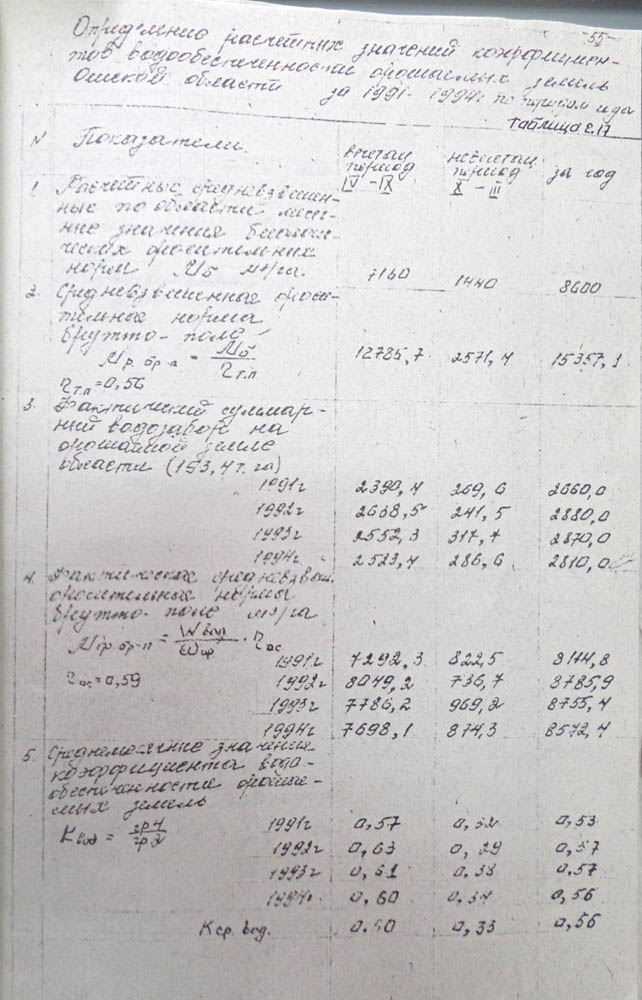 55
Определению расчетных значений коэффициен-
тов водообеспеченности орошаемых земель
Ошской области за 1991-1994г по периодам и да
Таблица 2.17
N Показатели вегетац. период IV-IX невегетац. период X-III за год
1. Расчетные средневзвешен-
ные по области
значения биологи-
ческих оросительных
норм Мб м³/га. 7160 1440 8600
2. Средневзвешенная ороси-
тельная норма
брутто-поле
Мр.бр-п = Мб/ηт.п 12785,7 2571,4 15357,1
ηт.п = 0,56
3. Фактический суммар-
ный водозабор на
орошаемой земле
области (193,4 т.га)
1991г 2390,4 269,6 2660,0
1992г 2638,5 241,5 2880,0
1993г 2552,3 317,7 2870,0
1994г 2523,4 286,6 2810,0
4. Фактические средневзвеш.
оросительные нормы
брутто-поле м³/га
Мр.бр-п = Wвод/ωор · ηос
1991г 7292,3 822,5 8114,8
ηос = 0,59 1992г 8049,2 736,7 8785,9
1993г 7786,2 969,2 8755,4
1994г 7698,1 874,3 8572,4
5. Среднемесячные значения
коэффициента водо-
обеспеченности орошае-
мых земель
Kвод = гр4/гр2 1991г 0,57 0,32 0,53
1992г 0,63 0,29 0,57
1993г 0,61 0,38 0,57
1994г 0,60 0,34 0,56
Кср.вод. 0.60 0,33 0,56